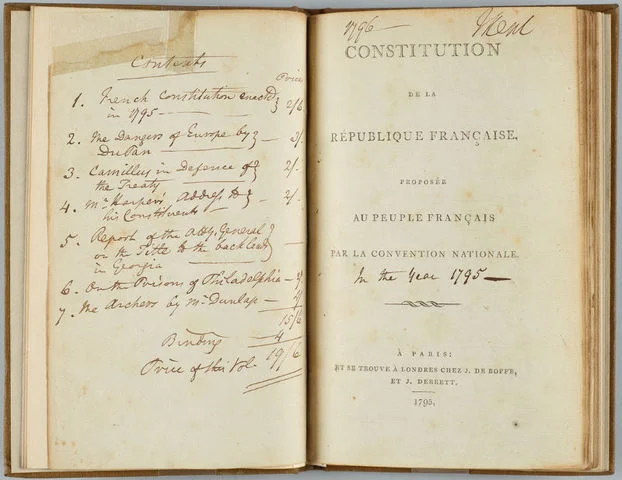 Contents
Price
1. French Constitution enacted } 2/6
in 1795
2. The Dangers of Europe by } — 2/-
Du Pan
3. Camillus in Defence of } 2/-
the Treaty
4. Mr Harper's Address to } — 2/-
his Constituents —
5. Report of the Atty. General }
on the Title to the back land } —
in Georgia
6. On the Prisons of Philadelphia —
7. The Archers by Mr Dunlap —
15/6
Binding 4
Price of this Vol. 19/6
1796
CONSTITUTION
DE LA
RÉPUBLIQUE FRANÇAISE,
PROPOSÉE
AU PEUPLE FRANÇAIS
PAR LA CONVENTION NATIONALE.
In the Year 1795 —
À PARIS:
ET SE TROUVE À LONDRES CHEZ J. DE BOFFE,
ET J. DEBRETT.
1795.